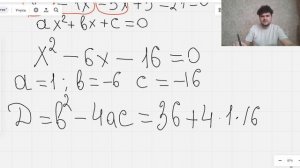 ax² + bx + c = 0
x² - 6x - 16 = 0
a = 1 ; b = -6 c = -16
D = b² - 4ac = 36 + 4·1·16